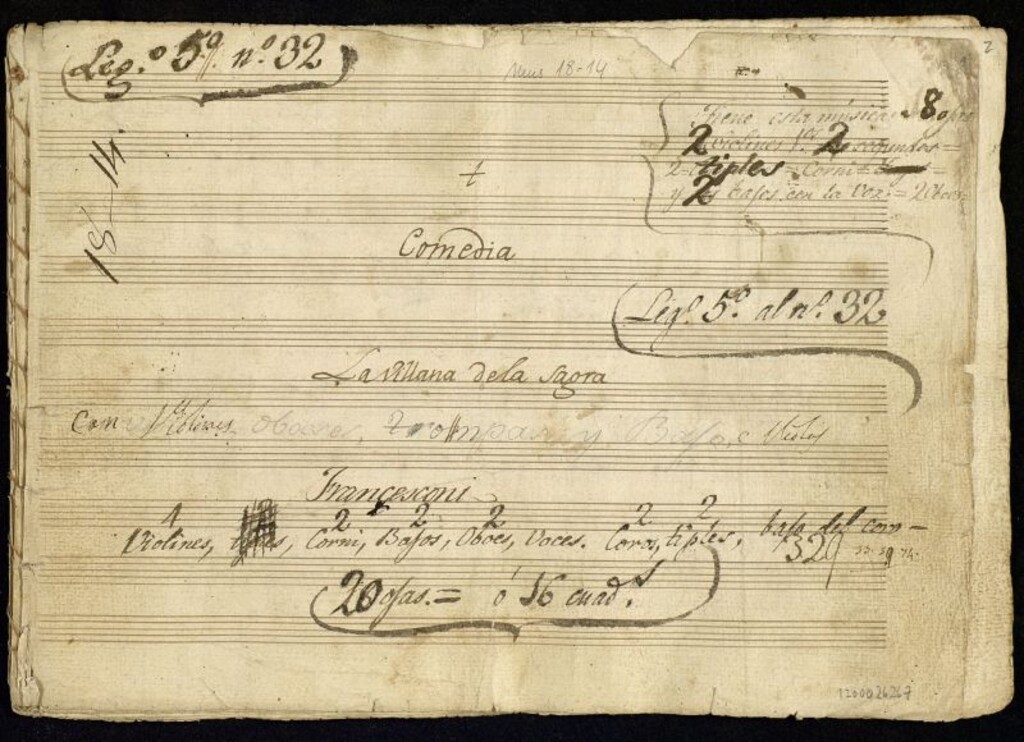 Leg.º 5.º nº 32
Mus 18-14
2
18-14.
Tiene esta música 8
2 violines 1.os 2 segundos =
2 tiples = Corni =
y 2 bajos con la Voz = 2 Oboes
+
Comedia
Leg.º 5.º al nº. 32
La Villana dela Sagra
Com Violines, Oboes, Trompas, y Bajo,
Francesconi
4 2 2 2 2 2
Violines, Corni, Bajos, Oboes, Voces. Coros, tiples, bajo del com-
32
20 ojas. = ó 16 cuad.s
1200026267